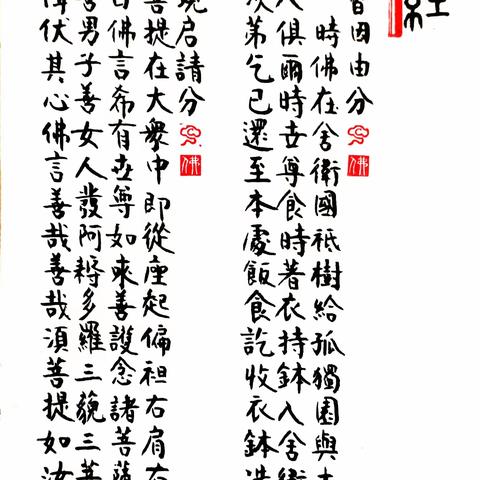 因由分
佛
時佛在舍衛國祇樹給孤獨園與大
人俱爾時世尊食時著衣持鉢入舍衛
次第乞已還至本處飯食訖收衣鉢洗
現启請分
佛
菩提在大衆中即從座起偏袒右肩右
白佛言希有世尊如來善護念諸菩薩
善男子善女人發阿耨多羅三藐三菩
降伏其心佛言善哉善哉須菩提如汝